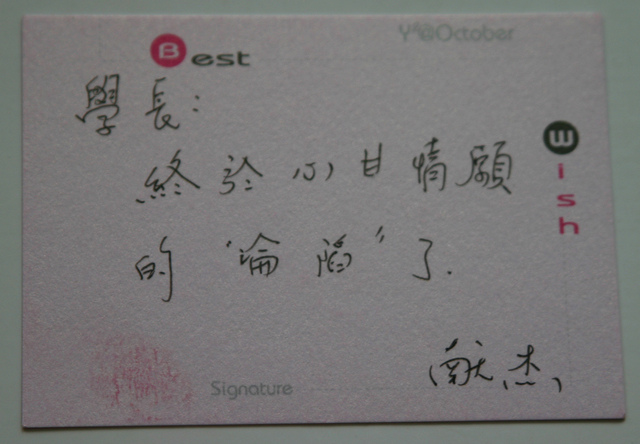 Best
Y²@October
學長：
Wish
終於心甘情願
的“淪陷”了.
Signature
献杰